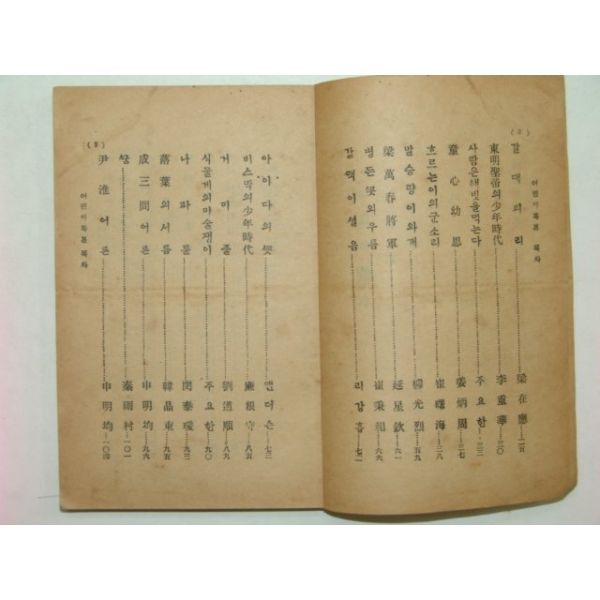 (2)
어린이독본 목차
갈대피리……梁在應—二五
東明聖帝의少年時代……李重華—三〇
사람은해빗을먹는다……주요한—三三
童心幼思……姜炳周—三七
흐르는이의군소리……崔曙海—三八
말승량이와개……柳光烈—五九
梁萬春將軍……延星欽—六一
병든꼿의우름……崔秉和—六六
갈맥이설음……리강흡—七二
(3)
어린이독본 목차
아이다의꼿……앤더슨—七三
비스막의少年時代……廉根守—八五
거미줄……劉道順—八九
식물계의마술쟁이……주요한—九〇
나파룬……閔泰瑗—九五
落葉의서름……韓晶東—九五
成三問어른……申明均—九六
쌍……秦雨村—一〇一
尹淮어른……申明均—一〇四